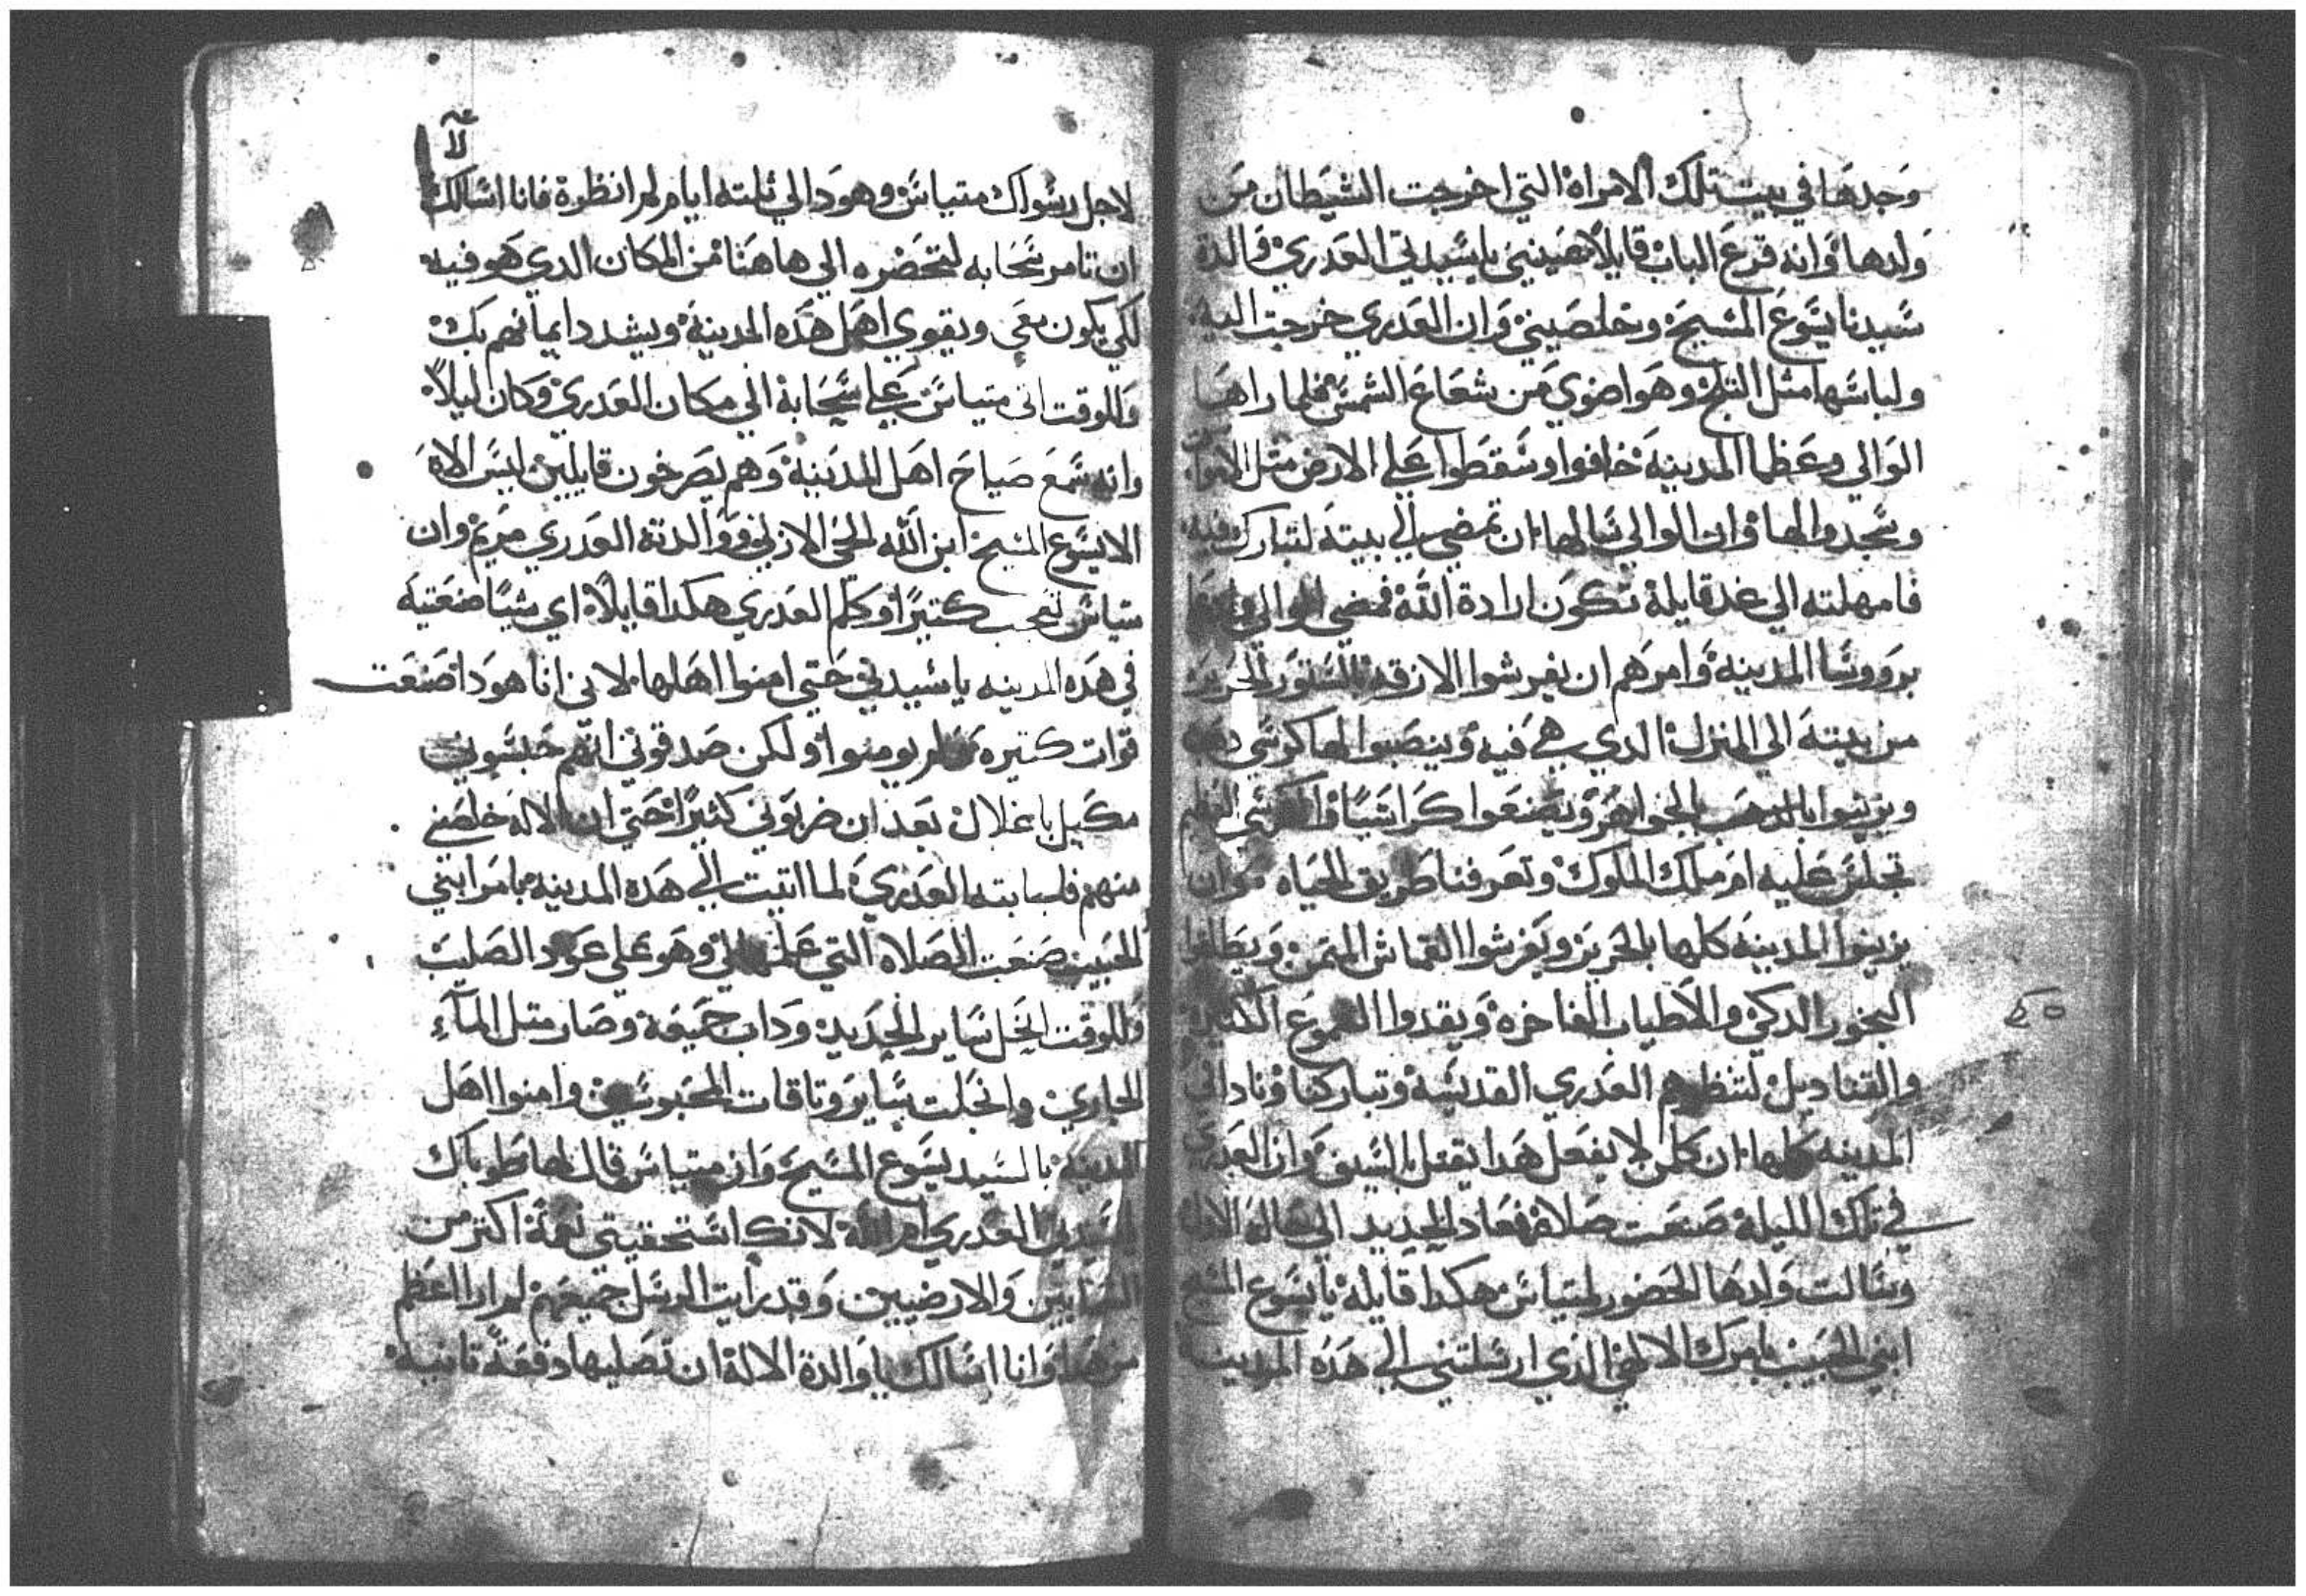 وجدها في بيت تلك الامراة التي اخرجت الشيطان من
ولدها وانه قرع الباب قايلا اعينيني يا سيدتي العدري والدة
سيدنا يسوع المسيح وخلصيني وان العدري خرجت اليه
ولباسها مثل الثلج وهو اضوي من شعاع الشمس فلما راها
الوالي وعظما المدينة خافوا وسقطوا علي الارض مثل الاموات
وسجدوا لها وان الوالي سالها ان تمضي الي بيته لتبارك فيه
فامهلته الي غد قايلة تكون ارادة الله فمضي الوالي
بروسا المدينة وامرهم ان يفرشوا الازقه بالستور الحرير
من بيته الي المنزل الدي هي فيه وينصبوا لها كرسي
ويزينوا بالدهب الجواهر ويصنعوا كراسيا
تجلس عليه ام ملك الملوك وتعرفنا طريق الحياه وان
يزينوا المدينه كلها بالحرير ويفرشوا القماش المتمن ويطلقوا
البخور الدكي والاطياب الفاخرة ويقدوا الشموع الكتيرة
والقناديل لتنظرهم العدري القديسه وتباركنا ونادا في
المدينه كلها ان كلمن لا يفعل هدا يقتل بالسيف وان العدري
في تلك الليلة صنعت صلاة فعاد الحديد الي حاله الاول
وسالت ولدها الحضور لمتياس هكدا قايلة يا يسوع المسيح
ابني الحبيب بامرك الالهي الذي ارسلتني الي هده المدينه
٤٥
لاجل رسولك متياس وهودا لي ثلثه ايام لم انظرة فانا اسالك
ان تامر سحابه لتحضره الي هاهنا من المكان الدي هو فيه
لكي يكون معي ويقوي اهل هده المدينة ويشدد ايمانهم بك
وللوقت اتي متياس علي سحابة الي مكان العدري وكان ليلا
وانه سمع صياح اهل المدينة وهم يصرخون قايلين ليس الاه
الا يسوع المسيح ابن الله الحي الازلي ووالدته العدري مريم وان
متياس تعجب كتيرا وكلم العدري هكدا قايلا اي شيا صنعتيه
في هده المدينه يا سيدتي حتي امنوا اهلها لاني انا هودا صنعت
قوات كتيره فلم يومنوا ولكن صدقوني انهم حبسوني
مكبل باغلال بعد ان ضربوني كثيرا حتي ان الاله خلصني
منهم فاجابته العدري لما اتيت الي هده المدينه بامر ابني
الحبيب صنعت الصلاه التي علمها لي وهو علي عود الصليب
وللوقت انحل ساير الحديد وداب جميعه وصار متل الماء
الجاري وانحلت ساير وتاقات المحبوسين وامنوا اهل
المدينة بالسيد يسوع المسيح وان متياس قال لها طوباك
يا سيدتي العدري ام الله لانك استحقيتي نعمة اكتر من
السماييين والارضيين وقد رايت الرسل جميعهم لم ارا اعظم
من هدا وانا اسالك يا والدة الاله ان تصليها دفعة تانية